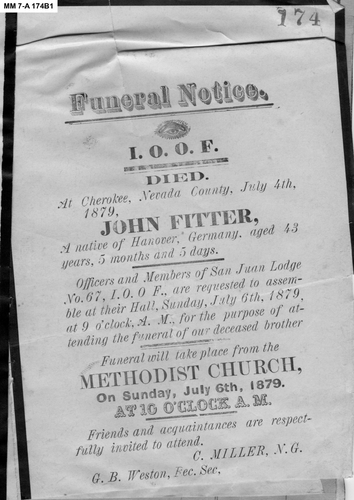 MM 7-A 174B1
174
Funeral Notice.
I. O. O. F.
DIED.
At Cherokee, Nevada County, July 4th,
1879,
JOHN FITTER,
A native of Hanover, Germany, aged 43
years, 5 months and 5 days.
Officers and Members of San Juan Lodge
No. 67, I. O. O F., are requested to assem-
ble at their Hall, Sunday, July 6th, 1879,
at 9 o'clock, A. M., for the purpose of at-
tending the funeral of our deceased brother
Funeral will take place from the
METHODIST CHURCH,
On Sunday, July 6th, 1879.
AT 10 O'CLOCK A. M.
Friends and acquaintances are respect-
fully invited to attend.
C. MILLER, N. G.
G. B. Weston, Rec. Sec.